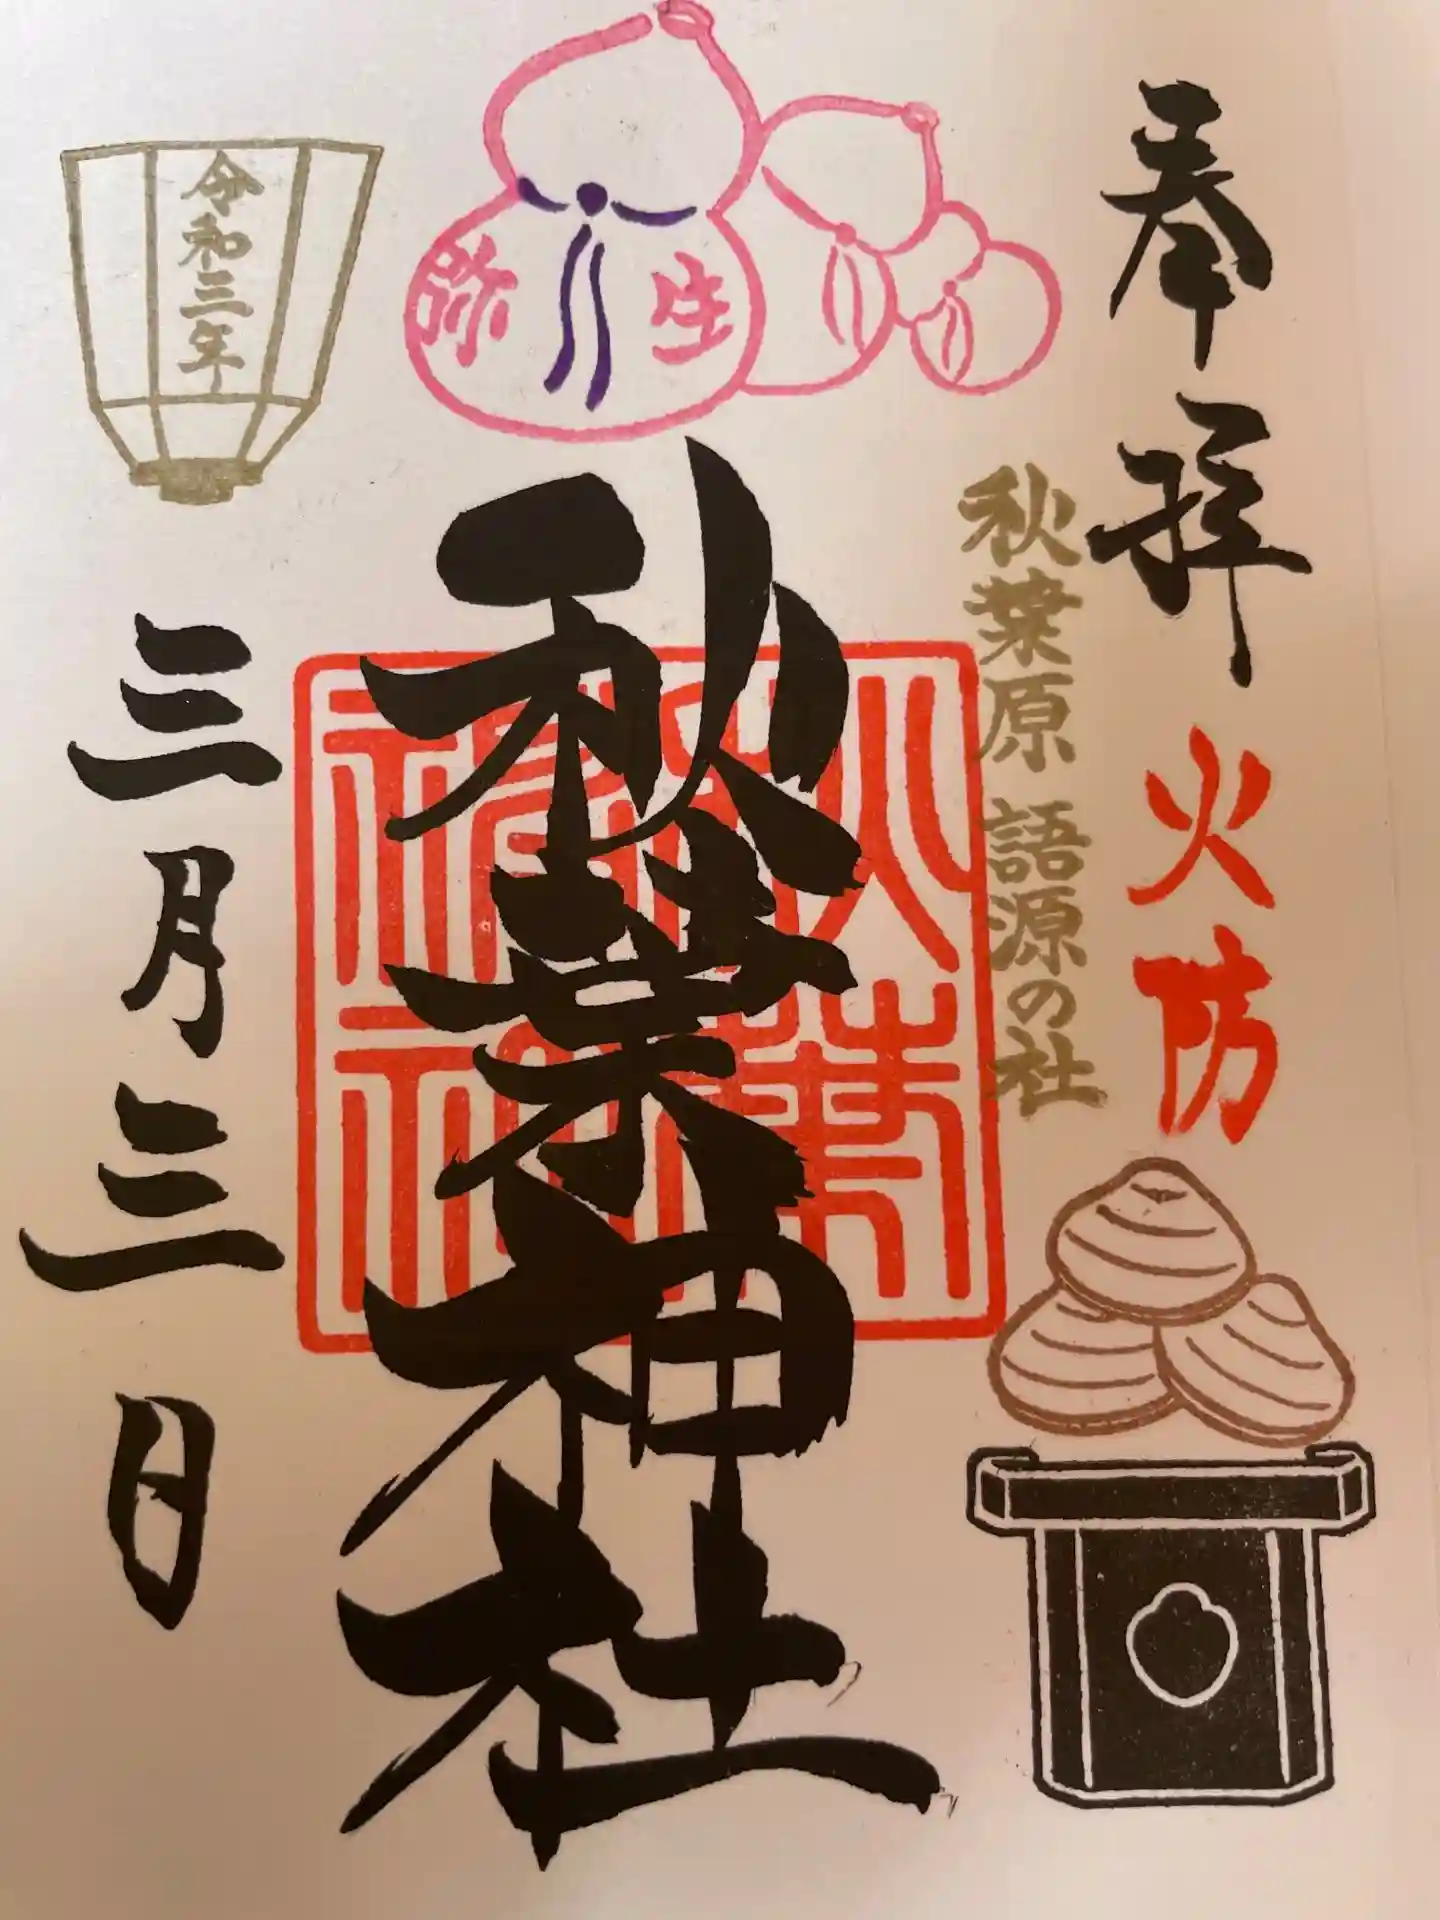 奉拝
火防
秋葉原 語源の社
弥生
秋葉神社
令和三年
三月三日